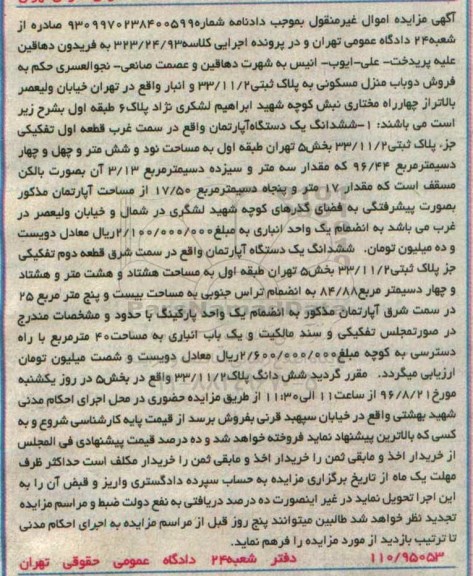 آگهی مزایده اموال غیرمنقول بموجب دادنامه شماره۹۳۰۹۹۷۰۲۳۸۴۰۰۵۹۹ صادره از
شعبه۲۴ دادگاه عمومی تهران و در پرونده اجرایی کلاسه۳۲۳/۲۴/۹۳ به فریدون دهاقین
علیه پریدخت- علی-ایوب- انیس به شهرت دهاقین و عصمت صانعی- نجوالعسری حکم به
فروش دوباب منزل مسکونی به پلاک ثبتی۳۳/۱۱/۲ و انبار واقع در تهران خیابان ولیعصر
بالاتراز چهارراه مختاری نبش کوچه شهید ابراهیم لشکری نژاد پلاک۶ طبقه اول بشرح زیر
است می باشند: ۱-ششدانگ یک دستگاه‌آپارتمان واقع در سمت غرب قطعه اول تفکیکی
جز، پلاک ثبتی۳۳/۱۱/۲ بخش۵ تهران طبقه اول به مساحت نود و شش متر و چهل و چهار
دسیمترمربع ۹۶/۴۴ که مقدار سه متر و سیزده دسیمترمربع ۳/۱۳ آن بصورت بالکن
مسقف است که مقدار ۱۷ متر و پنجاه دسیمترمربع ۱۷/۵۰ از مساحت آپارتمان مذکور
بصورت پیشرفتگی به فضای گذرهای کوچه شهید لشگری در شمال و خیابان ولیعصر در
غرب می باشد به انضمام یک واحد انباری به مبلغ۲/۱۰۰/۰۰۰/۰۰۰ریال معادل دویست
و ده میلیون تومان. ششدانگ یک دستگاه آپارتمان واقع در سمت شرق قطعه دوم تفکیکی
جز پلاک ثبتی۳۳/۱۱/۲ بخش۵ تهران طبقه اول به مساحت هشتاد و هشت متر و هشتاد
و چهار دسیمتر مربع۸۴/۸۸ به انضمام تراس جنوبی به مساحت بیست و پنج متر مربع ۲۵
در سمت شرق آپارتمان مذکور به انضمام یک واحد پارکینگ با حدود و مشخصات مندرج
در صورتمجلس تفکیکی و سند مالکیت و یک باب انباری به مساحت۴۰ مترمربع با راه
دسترسی به کوچه مبلغ۲/۶۰۰/۰۰۰/۰۰۰ریال معادل دویست و شصت میلیون تومان
ارزیابی میگردد. مقرر گردید شش دانگ پلاک۳۳/۱۱/۲ واقع در بخش۵ در روز یکشنبه
مورخ۹۶/۸/۲۱ از ساعت۱۱ الی۱۱:۳۰ از طریق مزایده حضوری در محل اجرای احکام مدنی
شهید بهشتی واقع در خیابان سپهبد قرنی بفروش برسد از قیمت پایه کارشناسی شروع و به
کسی که بالاترین پیشنهاد نماید فروخته خواهد شد و ده درصد قیمت پیشنهادی فی المجلس
از خریدار اخذ و مابقی ثمن را خریدار اخذ و مابقی ثمن را خریدار مکلف است حداکثر ظرف
مهلت یک ماه از تاریخ برگزاری مزایده به حساب سپرده دادگستری واریز و قبض آن را به
این اجرا تحویل نماید در غیر اینصورت ده درصد دریافتی به نفع دولت ضبط و مراسم مزایده
تجدید نظر خواهد شد طالبین میتوانند پنج روز قبل از مراسم مزایده به اجرای احکام مدنی
تا ترتیب بازدید از مورد مزایده را فرهم نماید.
۱۱۰/۹۵۰۵۳ دفتر شعبه۲۴ دادگاه عمومی حقوقی تهران